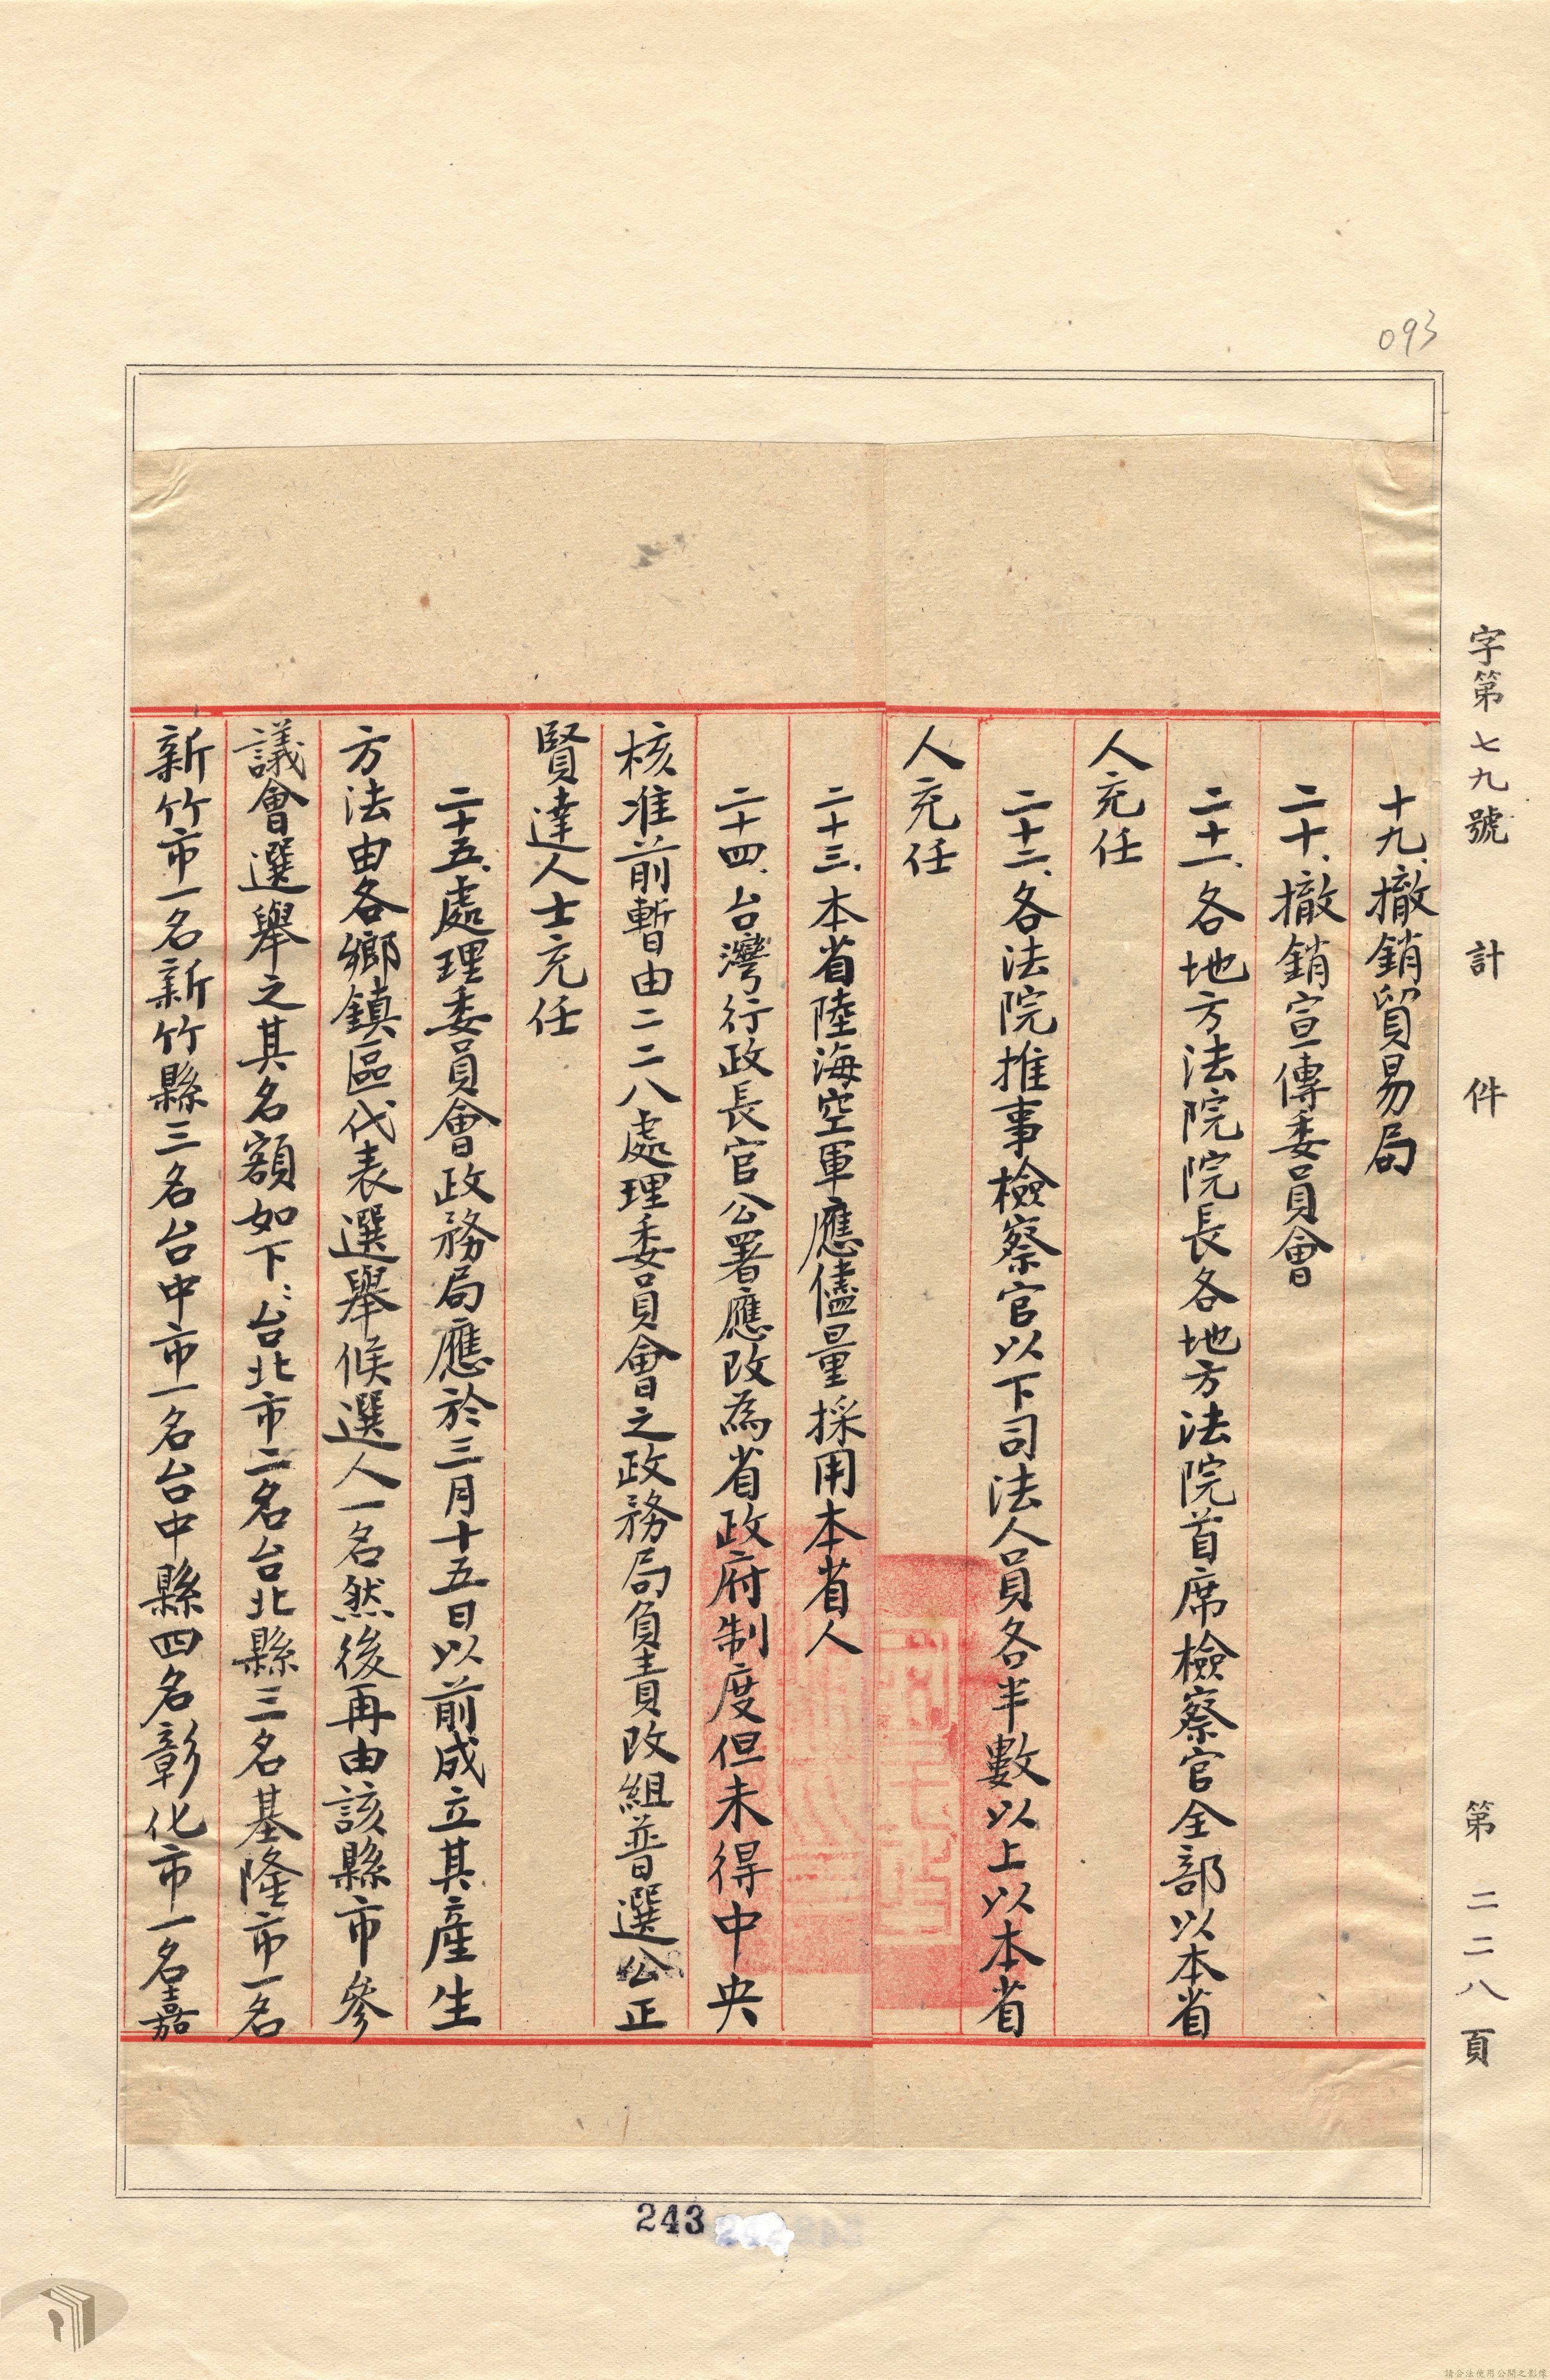 093
字第七九號 計 件 第二二八頁
十九、撤銷貿易局
二十、撤銷宣傳委員會
二十一、各地方法院院長各地方法院首席檢察官全部以本省
人充任
二十二、各法院推事檢察官以下司法人員各半數以上以本省
人充任
二十三、本省陸海空軍應儘量採用本省人
二十四、台灣行政長官公署應改為省政府制度但未得中央
核准前暫由二二八處理委員會之政務局負責改組普選公正
賢達人士充任
二十五、處理委員會政務局應於三月十五日以前成立其產生
方法由各鄉鎮區代表選舉候選人一名然後再由該縣市參
議會選舉之其名額如下：台北市二名台北縣三名基隆市一名
新竹市一名新竹縣三名台中市一名台中縣四名彰化市一名嘉
243
請合法使用公開之影像